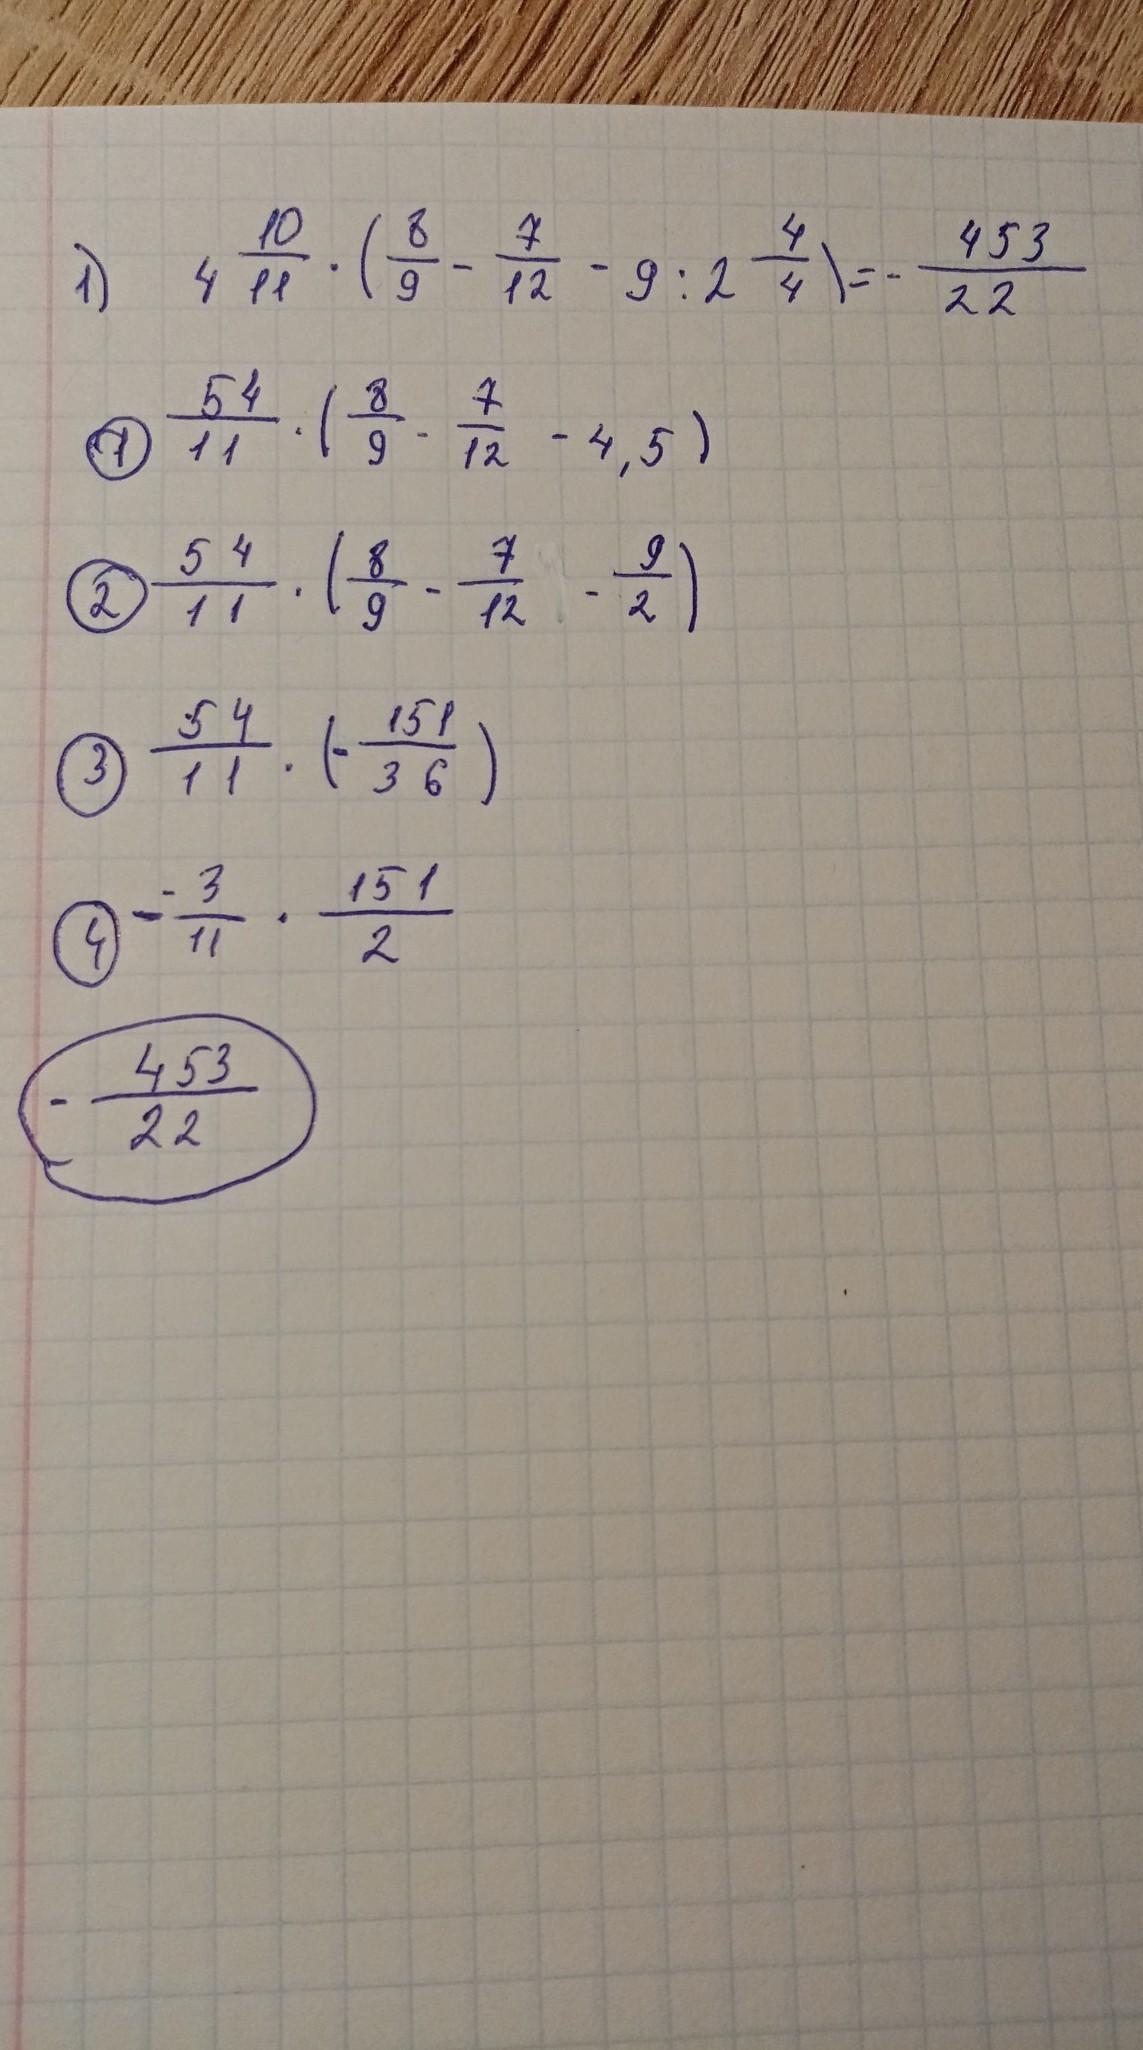 1) 4 10/11 · (8/9 - 7/12 - 9 : 2 4/4) = - 453/22
① 54/11 · (8/9 - 7/12 - 4,5)
② 54/11 · (8/9 - 7/12 - 9/2)
③ 54/11 · (- 151/36)
④ - 3/11 · 151/2
- 453/22